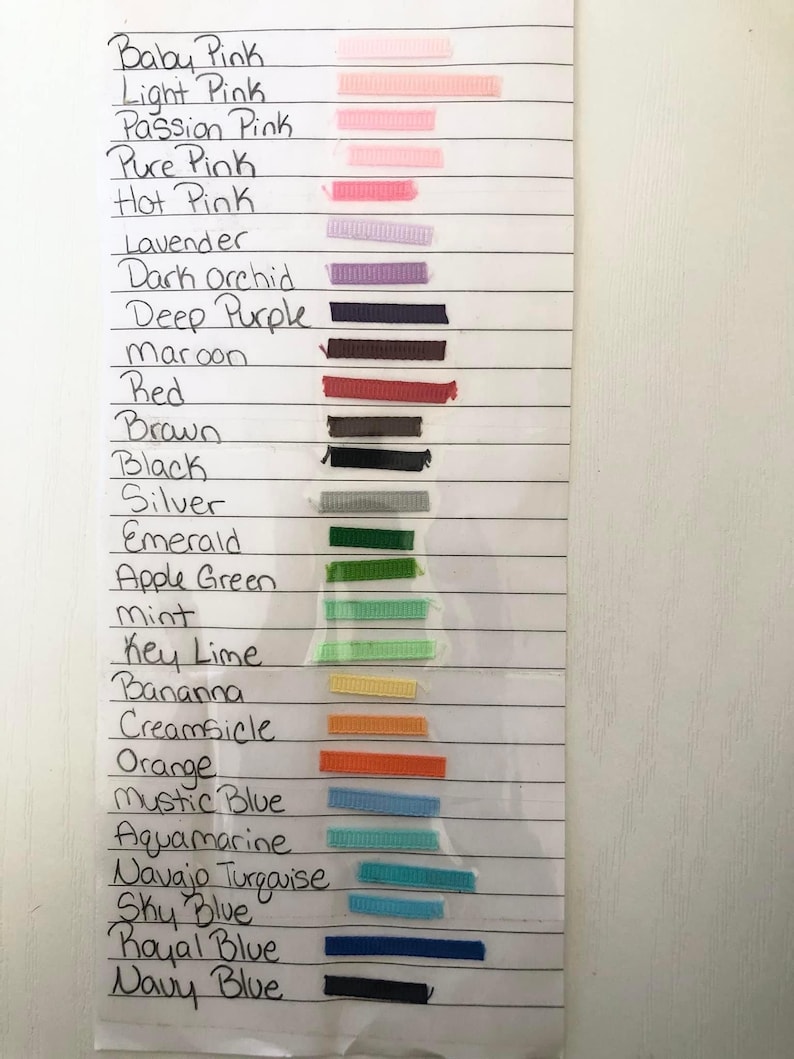 Baby Pink
Light Pink
Passion Pink
Pure Pink
Hot Pink
Lavender
Dark Orchid
Deep Purple
Maroon
Red
Brown
Black
Silver
Emerald
Apple Green
Mint
Key Lime
Bananna
Creamsicle
Orange
Mystic Blue
Aquamarine
Navajo Turqouise
Sky Blue
Royal Blue
Navy Blue